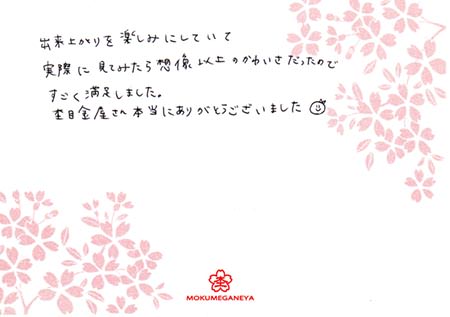 出来上がりを楽しみにしていて
実際に見てみたら想像以上のかわいさだったので
すごく満足しました。
杢目金屋さん本当にありがとうございました
杢
MOKUMEGANEYA